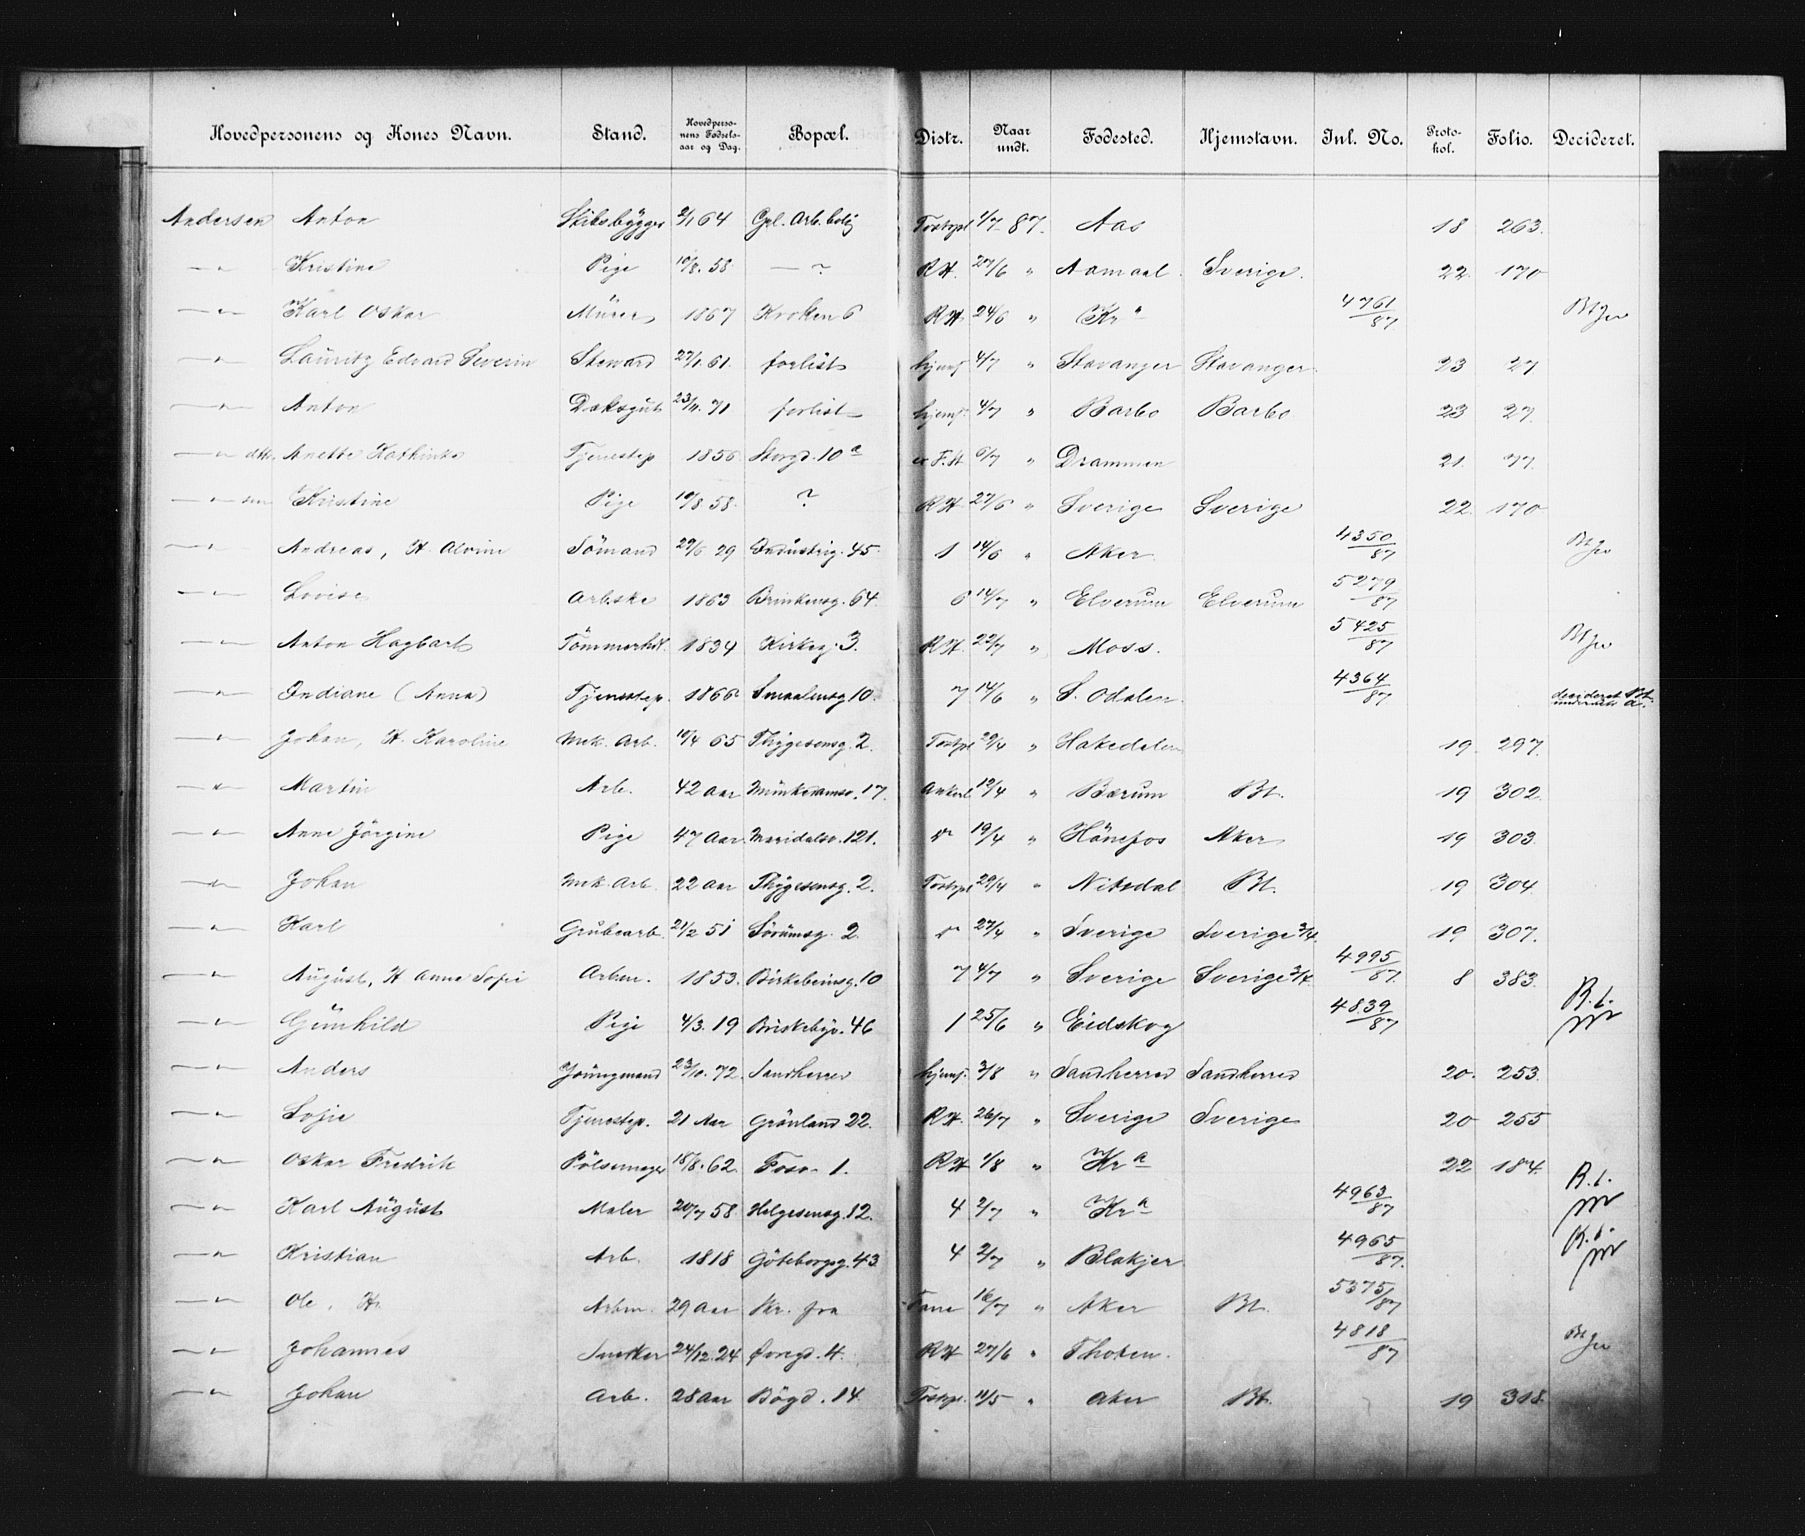 Hovedpersonens og Kones Navn. Stand. Hovedpersonens Fødsels-aar og Dag. Bopæl. Distr. Naar undt. Fødested. Hjemstavn. Inl. No. Protokol. Folio. Decideret.
Andersen Anton Skibsbygger 2/1 64 Gel. Arb.bolig Toxtgpl 1/7 87. Aas 18 263.
—"— Kristine Pige 10/8. 58 — ? RH. 27/6 " Aamaal Sverige. 22. 170
—"— Karl Oskar Mürer 1867 Kroken 6 RH. 24/6 " Kr a 4761/87
—"— Lauritz Edvard Severin Steward 27/1. 61. forlist hjemf 4/7 " Stavanger Stavanger 23 27
—"— Anton Dæksgut 23/11. 71 forlist hjemf. 4/7 " Barbo Barbo 23 27.
—"— dtr. Anette Kathinka Tjenestep 1856 Storgd. 10 a F.H 6/7 " Drammen 21. 77.
—"— sen Kristine Pige 10/8 58. ? RH. 27/6 " Sverige Sverige 22. 170
—"— Andreas, H. Alvine Sömand 29/6 29 Industrig. 45. 1 14/6 " Aker 4350/87
—"— Lovise Arb.ske 1863 Brinkensg. 64. 6 14/7 " Elverum Elverum 5279/87
—"— Anton Hagbart Tömmerhdt. 1834 Kirkeg. 3. RH. 22/7 " Moss. 5425/87
—"— Indiane (Anna) Tjenestep. 1866 Smaalensg 10. 7 14/6 " S. Odalen 4364/87 decideret Bt.
—"— Johan, H. Karoline Mek. Arb. 10/4 65 Thygesensg. 2. Toxtgpl 29/4 " Hakedalen 19. 297.
—"— Martin Arb. 42 Aar Münkedamsv. 17. Ankerl 19/4 " Bærum Bt. 19 302.
—"— Anne Jörgine Pige 47 Aar Maridalsv. 121. 19/4 " Hönefos Aker 19 303.
—"— Johan Mek. Arb. 22 Aar Thygesensg. 2. Toxtgpl 29/4 " Nitedal Bt. 19 304.
—"— Karl Grubearb. 21/2 51 Sörumsg. 2. 27/4 " Sverige Sverige 3/4. 19 307.
—"— August, H. Anna Sofie Arbm. 1853. Birkebeinsg. 10 7 4/7 " Sverige Sverige 3/4. 4995/87. 8 383.
—"— Günhild Pige 4/3. 19 Briskebyv. 46 1 25/6 " Eidskog 4839/87 B.t.
—"— Anders Jüngmand 23/10. 72. Sandherred hjemf. 3/8 " Sandherred Sandherred 20. 253.
—"— Sofie Tjenestep. 21 Aar Grönland 22. RH. 26/7 " Sverige Sverige 20 255
—"— Oskar Fredrik Pölsemager 15/8. 62. Fosv. 1. RH 1/8 " Kr a 22 184.
—"— Karl August Maler 20/7 58. Helgesensg. 12. 4 2/7 " Kr a 4963/87 B.t.
—"— Kristian Arb. 1818 Göteborgsg. 43. 4 2/7 " Blakjer 4965/87. B.t.
—"— Ole, H. Arbm. 29 Aar Kr. fra 16/7 " Aker Bt. 5375/87
—"— Johannes Snedker 24/12. 24 Övregd. 4. RH 27/6 " Thoten. 4818/87
—"— Johan Arb. 28 Aar Bögd. 14. Toxtgpl. 11/5 " Aker Bt. 19 318.